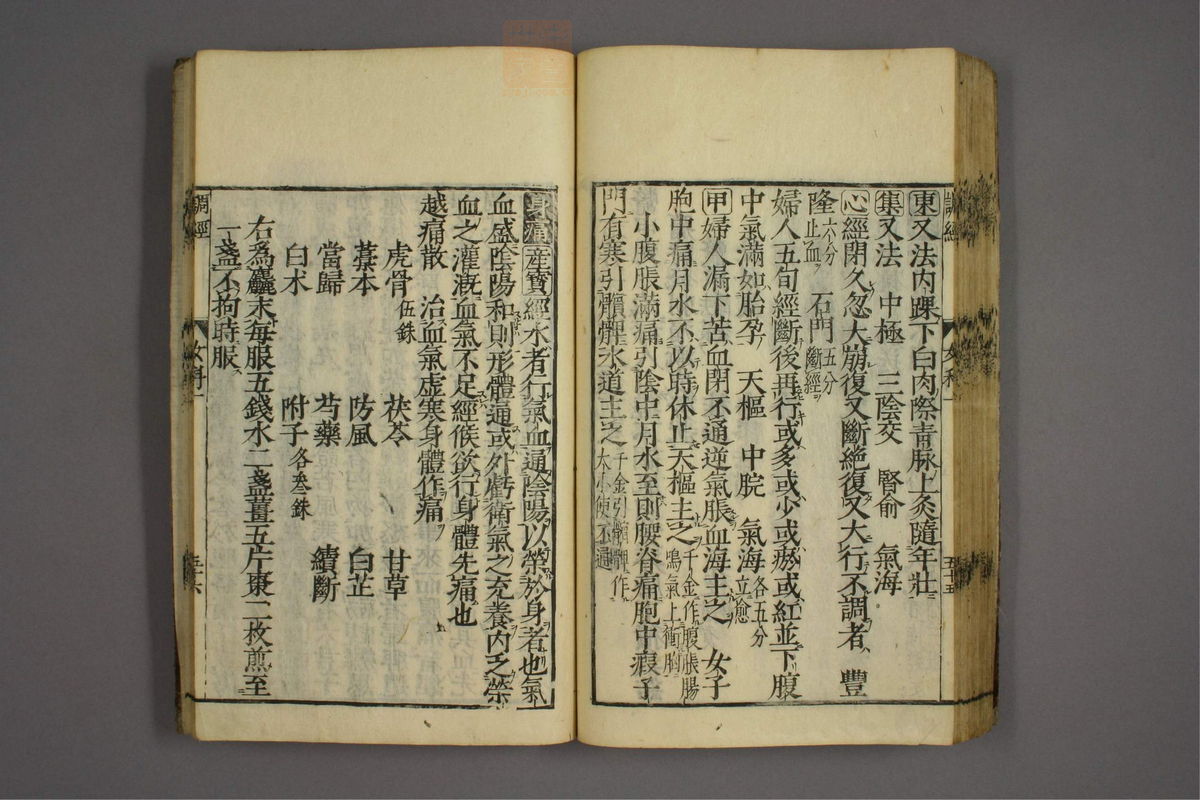 東又法内踝下白肉際青脉上灸隨年壯
集又法　中極　三陰交　腎俞　氣海
心經閉久忽大崩復又斷絶復又大行不調者　豐
隆六分止血　石門五分斷經
婦人五旬經斷後再行或多或少或瘀或紅並下腹
中氣滿如胎孕　天樞　中脘　氣海各五分立愈
甲婦人漏下苦血閉不通逆氣脹血海主之　女子
胞中痛月水不以時休止天樞主之千金作腹脹腸鳴氣上衝胸
小腹脹滿痛引陰中月水至則腰脊痛胞中瘕子
門有寒引髕髀水道主之千金引髕髀作大小便不通
調經　女科一　五十五
身痛産寶經水者行氣血通陰陽以榮於身者也氣
血盛陰陽和則形體通或外虧衛氣之充養内乏榮
血之灌漑血氣不足經候欲行身體先痛也
越痛散　治血氣虚寒身體作痛
虎骨伍銖　茯苓　甘草
藁本　防風　白芷
當歸　芍藥　續斷
白术　附子各叁銖
右爲麤末每服五錢水二盞薑五片棗二枚煎至
一盞不拘時服
調經　女科一　五十六